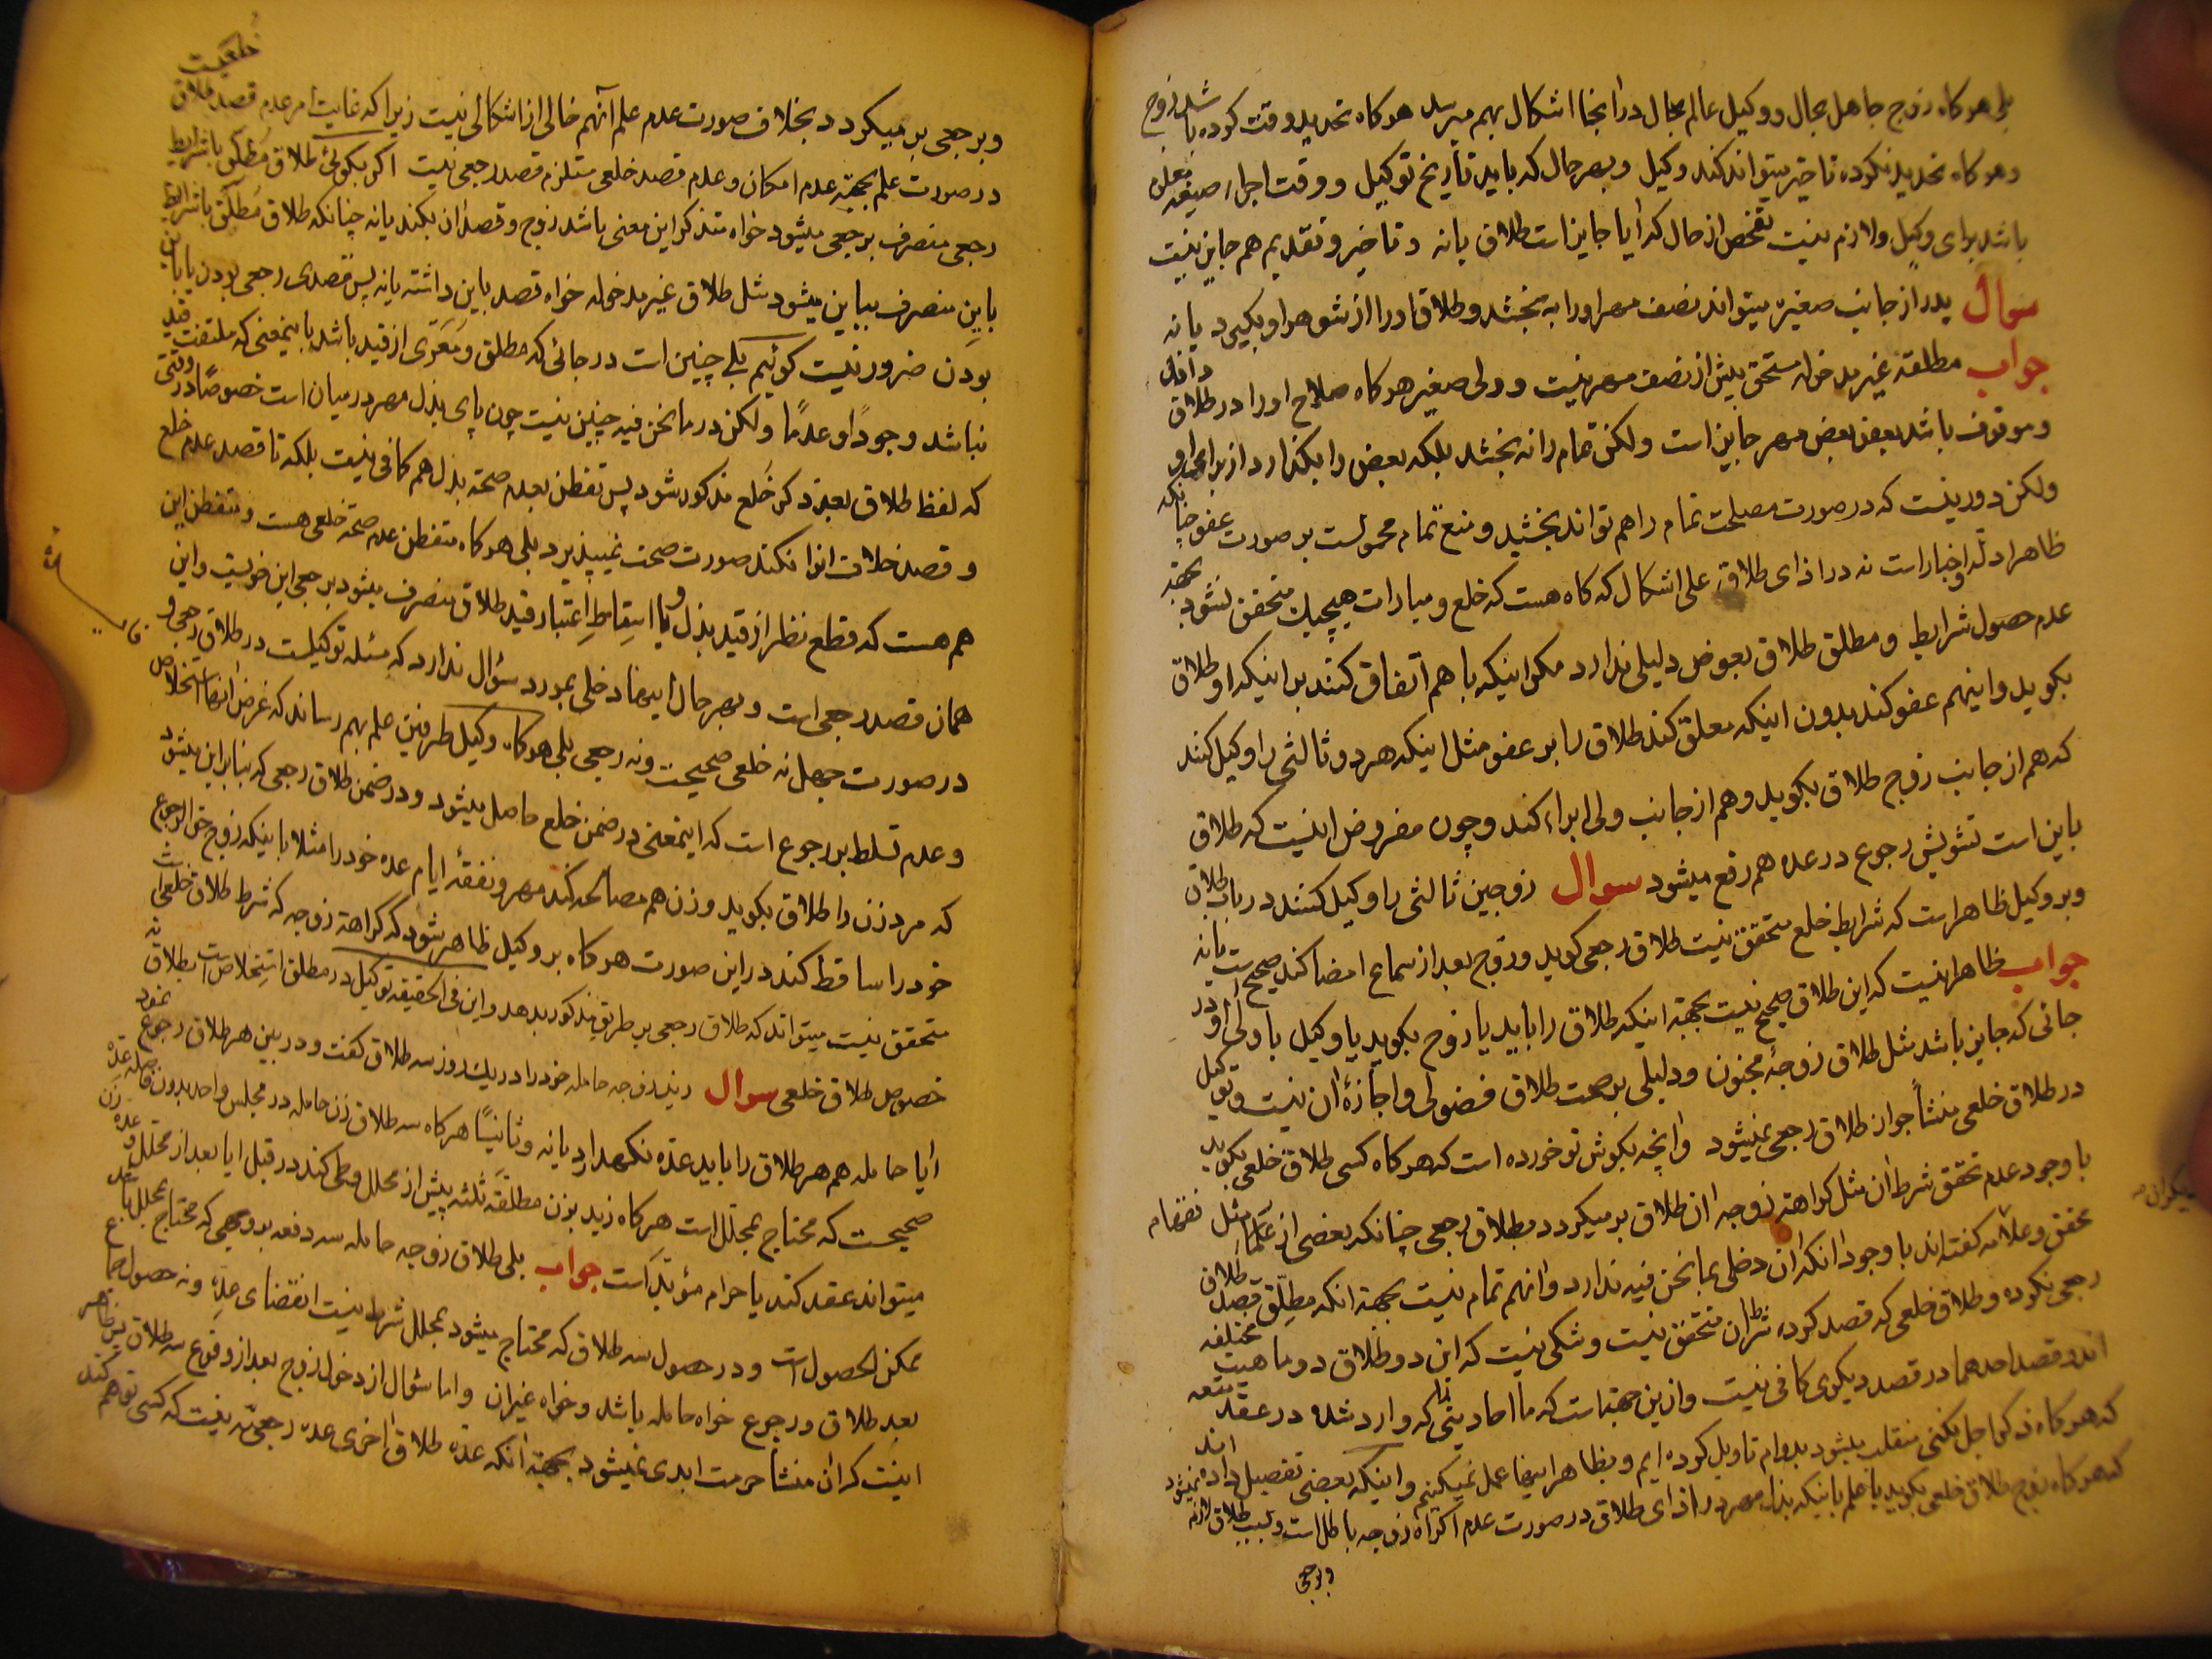 بلی هرکاه زوج جاهل بحال ووکیل عالم بحال در اینجا اشکال بهم میرسد هرکاه تحدید وقت کرده باشد زوج
وهرکاه تحدید نکرده تاخیر میتواند کند وکیل وبهر حال که باید تاریخ توکیل ووقت اجراء صیغه معلوم
باشد برای وکیل ولازم نیست تفحص از حال که آیا جایز است طلاق یا نه وتاخیر وتقدیم هم جایز نیست
سوال پدر از جانب صغیره میتواند نصف مهر اورا به بخشد وطلاق اورا از شوهر او بکیرد یا نه
جواب مطلقه غیر مدخوله مستحق بیش از نصف مهر نیست وولی صغیر هرکاه صلاح اورا در طلاق داند
وموقوف باشد بعفو بعض مهر جایز است ولکن تمام را نه بخشد بلکه بعض را بکذارد از برای او
ولکن دور نیست که در صورت مصلحت تمام را هم تواند بخشید ومنع تمام محمولست بر صورت عفو چنانکه
ظاهر ادله واخبار است نه در ازای طلاق علی اشکال که کاه هست که خلع ومبارات هیچیک متحقق نشود بجهة
عدم حصول شرایط ومطلق طلاق بعوض دلیلی ندارد مکر اینکه با هم اتفاق کنند بر اینکه او طلاق
بکوید واینهم عفو کند بدون اینکه معلق کند طلاق را بر عفو مثل اینکه هر دو ثالثی را وکیل کنند
که هم از جانب زوج طلاق بکوید وهم از جانب ولی ابراء کند وچون مفروض اینست که طلاق
باین است تشویش رجوع در عده هم رفع میشود سوال زوجین ثالثی را وکیل کنند در باب طلاق
وبر وکیل ظاهر است که شرایط خلع متحقق نیست طلاق رجعی کوید وزوج بعد از سماع امضا کند صحیح است یا نه
جواب ظاهر اینست که این طلاق صحیح نیست بجهة اینکه طلاق را باید یا زوج بکوید یا وکیل یا ولی او در
جائی که جایز باشد مثل طلاق زوجهٔ مجنون ودلیلی بر صحت طلاق فضولی واجازهٔ آن نیست وتوکیل
در طلاق خلعی منشأ جواز طلاق رجعی نمیشود وانچه بکوش تو خورده است که هرکاه کسی طلاق خلعی بکوید
با وجود عدم تحقق شرط آن مثل کراهة زوجه ان طلاق بر میکردد بطلاق رجعی چنانکه بعضی از علما مثل
محقق وعلامه کفته اند با وجود انکه آن دخلی بما نحن فیه ندارد وانهم تمام نیست بجهة انکه مطلق قصد طلاق
رجعی نکرده وطلاق خلعی که قصد کرده شرط ان متحقق نیست وشکی نیست که این دو طلاق دو ماهیت مختلفه
اند وقصد احدهما در قصد دیکری کافی نیست وازین جهتست که ما احادیثی را که وارد شده در عقد متعه
که هرکاه ذکر اجل نکنی منقلب میشود بدوام تاویل کرده ایم وبظاهر اینها عمل نمیکنیم واینکه بعضی تفصیل داده اند
که هرکاه زوج طلاق خلعی بکوید با علم باینکه بذل مهر در ازای طلاق در صورت عدم اکراه زوجه باطل است وبسبب طلاق لازم نمیشود
وبرجعی
وبرجعی بر میکردد بخلاف صورت عدم علم آنهم خالی از اشکالی نیست زیرا که غایت امر عدم قصد طلاق خلعیست
در صورت علم بجهة عدم امکان وعدم قصد خلعی مستلزم قصد رجعی نیست اکر بکوئی طلاق مطلق باشرایط
رجعی منصرف برجعی میشود خواه متذکر این معنی باشد زوج وقصد ان بکند یا نه چنانکه طلاق مطلق باشرایط
باین منصرف بباین میشود مثل طلاق غیر مدخوله خواه قصد باین داشته یا نه پس قصدی رجعی بودن یا باین
بودن ضرور نیست کوئیم بلی چنین است در جائی که مطلق ومعری از قید باشد باینمعنی که ملتفت قید
نباشد وجوداً وعدماً ولکن در ما نحن فیه چنین نیست چون پای بذل مهر در میان است خصوصاً در وقتی
که لفظ طلاق بعد از ذکر خلع مذکور شود پس تفطن بعدم صحة بذل هم کافی نیست بلکه تا قصد عدم خلع
وقصد خلاف انرا نکند صورت صحت نمیپذیرد بلی هرکاه متفطن عدم صحة خلعی هست ومتفطن این
هم هست که قطع نظر از قید بذل ویا اسقاط اعتبار قید طلاق منصرف میشود برجعی این خوبست واین
همان قصد رجعی است وبهر حال اینها دخلی بمورد سؤال ندارد که مسئله توکیلست در طلاق رجعی و
در صورت جهل نه خلعی صحیحست ونه رجعی بلی هرکاه وکیل طرفین علم بهم رساند که غرض اینها استخلاص
وعدم تسلط بر رجوع است که اینمعنی در ضمن خلع حاصل میشود ودر ضمن طلاق رجعی که بنا بر این میشود
که مرد زن را طلاق بکوید وزن هم مصالحه کند مهر ونفقهٔ ایام عده خود را مثلا باینکه زوج حق الرجوع
خود را ساقط کند در این صورت هرکاه بر وکیل ظاهر شود که کراهة زوجه که شرط طلاق خلعی است
متحقق نیست میتواند که طلاق رجعی بر طریق مذکور بدهد واین فی الحقیقه توکیل در مطلق استخلاص است بطلاق نه
خصوص طلاق خلعی سوال زید زوجه حامله خود را در یک روز سه طلاق کفت ودر بین هر طلاق رجوع نمود
ایا حامله هم هر طلاق را باید عده نکهدارد یا نه وثانیاً هرکاه سه طلاق زن حامله در مجلس واحد بدون فاصله عده
صحیحست که محتاج بمحلل است هرکاه زید بزن مطلقه ثلثه پیش از محلل وطی کند در قبل ایا بعد از محلل وعده زن
میتواند عقد کند یا حرام مؤبد است جواب بلی طلاق زوجه حامله سه دفعه بروجهی که محتاج بمحلل باشد
ممکن الحصول است ودر حصول سه طلاق که محتاج میشود بمحلل شرط نیست انقضای عده ونه حصول جماع
بعد طلاق ورجوع خواه حامله باشد وخواه غیر ان واما سؤال از دخول زوج بعد از وقوع سه طلاق پس ظاهر
اینست که ان منشأ حرمت ابدی نمیشود بجهة آنکه عده طلاق اخری عده رجعیه نیست که کسی توهم کند